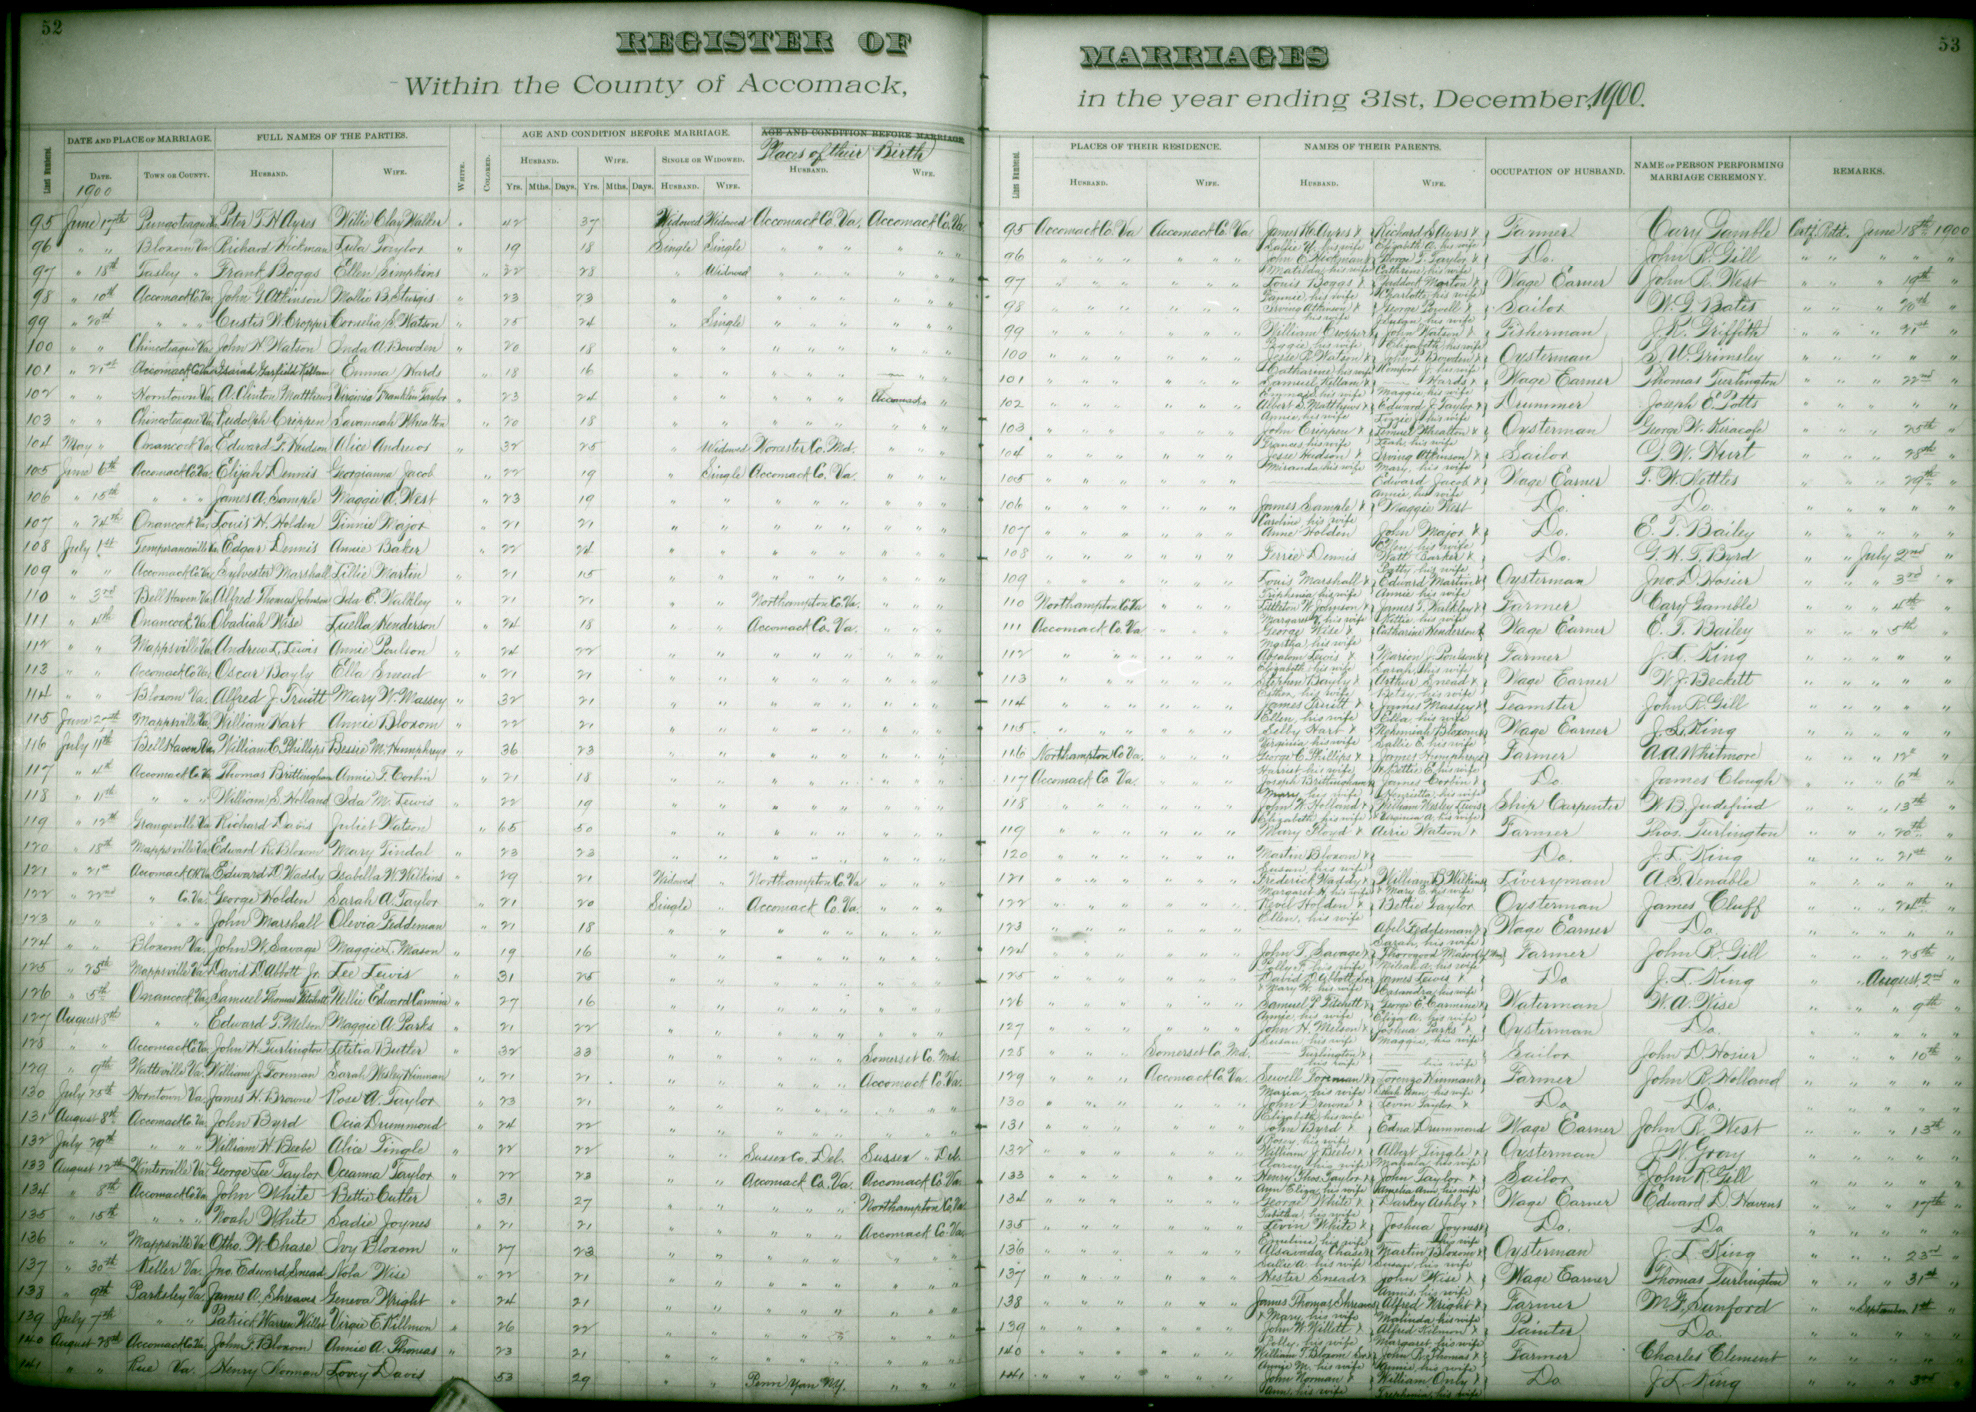 52
REGISTER OF
Within the County of Accomack,
DATE AND PLACE OF MARRIAGE.
FULL NAMES OF THE PARTIES.
AGE AND CONDITION BEFORE MARRIAGE.
AGE AND CONDITION BEFORE MARRIAGE.
Places of their Birth
Line Numbers.
DATE.
1900
TOWN OR COUNTY.
HUSBAND.
WIFE.
WHITE.
COLORED.
HUSBAND.
WIFE.
SINGLE OR WIDOWED.
HUSBAND.
WIFE.
Yrs. Mths. Days. Yrs. Mths. Days. HUSBAND. WIFE.
95 June 17th Pungoteague Va Peter T. H Ayres Willie Clay Waller " 42 37 Widowed Widowed Accomack Co. Va. Accomack Co. Va.
96 " " Bloxom Va. Richard Hickman Lula Taylor " 19 18 Single Single " " " " " "
97 " 18th Tasley " Frank Boggs Ellen Simpkins " 22 28 " Widowed " " " " " "
98 " 10th Accomack Co Va John G Atkinson Mollie B. Sturgis " 23 23 " " " " " " " "
99 " 20th " " " Custis W Cropper Cornelia S. Watson " 25 24 " Single " " " " " "
100 " " Chincoteague Va John W. Watson Inda A. Bowden " 20 18 " " " " " " " "
101 " 21st Accomack Co Va Isaiah Garfield Kellam Emma Wards " 18 16 " " " " " " "
102 " " Horntown Va. A. Clinton Matthews Virginia Franklin Taylor " 23 24 " " " " " Accomack "
103 " " Chincoteague Va Rudolph Crippen Savannah Whealton " 20 18 " " " " " " " "
104 May " Onancock Va. Edward T. Hudson Alice Andrews " 32 25 " Widowed Worcester Co. Md. " " "
105 June 6th Accomack Co. Va. Elijah Dennis Georgianna Jacob " 22 19 " Single Accomack Co. Va. " " "
106 " 15th " " " James A. Sample Maggie A. West " 23 19 " " " " " " " "
107 " 24th Onancock Va. Louis H. Holden Tinnie Major " 21 21 " " " " " " " "
108 July 1st Temperanceville Va Edgar Dennis Annie Baker " 22 24 " " " " " " " "
109 " " Accomack Co Va. Sylvester Marshall Lillie Martin " 21 15 " " " " " " " "
110 " 3rd Bell Haven Va. Alfred Thomas Johnson Ida E. Walkley " 21 21 " " Northampton Co. Va. " " "
111 " 4th Onancock Va. Obadiah Wise Luella Henderson " 24 18 " " Accomack Co. Va. " " "
112 " " Mappsville Va Andrew L. Lewis Annie Poulson " 24 22 " " " " " " " "
113 " " Accomack Co Va. Oscar Bayly Ella Snead " 21 21 " " " " " " " "
114 " " Bloxom Va. Alfred J. Truitt Mary W. Massey " 32 21 " " " " " " " "
115 June 27th Mappsville Va. William Hart Annie Bloxom " 22 21 " " " " " " " "
116 July 11th Bell Haven Va. William C. Phillips Bessie M. Humphreys " 36 23 " " " " " " " "
117 " 4th Accomack Co. Va. Thomas Brittingham Annie T. Corbin " 21 18 " " " " " " " "
118 " 11th " " " William S. Holland Ida M. Lewis " 22 19 " " " " " " " "
119 " 12th Grangeville Va Richard Davis Juliet Watson " 65 50 " " " " " " " "
120 " 18th Mappsville Va. Edward R. Bloxom Mary Tindal " 23 23 " " " " " " " "
121 " 21st Accomack CH Va Edward D. Waddy Isabella W. Wilkins " 29 21 Widowed " Northampton Co. Va " " "
122 " 22nd " Co. Va. George Holden Sarah A. Taylor " 21 20 Single " Accomack Co. Va. " " "
123 " " " " John Marshall Olevia Feddeman " 21 18 " " " " " " " "
124 " " Bloxom Va. John W. Savage Maggie L. Mason " 19 16 " " " " " " " "
125 " 25th Mappsville Va. David D. Abbott Jr. Lee Lewis " 31 25 " " " " " " " "
126 " 5th Onancock Va. Samuel Thomas Fitchett Nellie Edward Carmine " 27 16 " " " " " " " "
127 August 8th " " Edward T. Melson Maggie A. Parks " 21 22 " " " " " " " "
128 " " Accomack Co Va. John H. Turlington Letitia Butler " 32 33 " " " " " Somerset Co. Md.
129 " 9th Wattsville Va. William J. Forman Sarah Wesley Hinman " 21 21 " " " " " Accomack Co. Va.
130 July 25th Horntown Va. James H. Browne Rose A. Taylor " 23 21 " " " " " " " "
131 August 8th Accomack Co. Va. John Byrd Ocia Drummond " 24 22 " " " " " " " "
132 July 29th " " " William H. Beebe Alice Tingle " 22 22 " " Sussex Co. Del. Sussex " Del.
133 August 12th Winterville Va George Lee Taylor Oceanna Taylor " 22 23 " " Accomack Co. Va. Accomack Co. Va.
134 " 8th Accomack Co Va. John White Bettie Cutler " 31 27 " " " " " Northampton Co. Va.
135 " 15th " " " Noah White Sadie Joynes " 21 21 " " " " " Accomack Co. Va.
136 " " Mappsville Va Otho. W. Chase Ivy Bloxom " 27 23 " " " " " " " "
137 " 30th Keller Va. Jno. Edward Snead Nola Wise " 22 21 " " " " " " " "
138 " 9th Parksley Va. James A. Shreaves Geneva Wright " 24 21 " " " " " " " "
139 July 7th " " Patrick Warren Willett Virgie E. Killmon " 26 22 " " " " " " " "
140 August 28th Accomack Co Va. John T. Bloxom Annie A. Thomas " 23 21 " " " " " " " "
141 " " Rue Va. Henry Norman Lovey Davis 53 29 " " Penn Yan N.Y. " " "
MARRIAGES
53
in the year ending 31st, December, 1900.
Line Numbers.
PLACES OF THEIR RESIDENCE.
NAMES OF THEIR PARENTS.
OCCUPATION OF HUSBAND.
NAME OF PERSON PERFORMING MARRIAGE CEREMONY.
REMARKS.
HUSBAND. WIFE. HUSBAND. WIFE.
95 Accomack Co. Va Accomack Co. Va James K. Ayres & Richard S. Ayres & Farmer Cary Gamble Certf. Retd. June 18th 1900
Sallie U. his wife Elizabeth A. his wife
96 " " " " " " John E. Hickman & George T. Taylor & Do. John R. Gill " " " " "
Matilda, his wife Catharine, his wife
97 " " " " " " Louis Boggs & Juddock Morton & Wage Earner John R. West " " " 19th "
Fannie, his wife Charlotte, his wife
98 " " " " " " Irving Atkinson & George Powell & Sailor W. G. Bates " " " 20th "
99 " " " " " " William Cropper & John Watson & Fisherman J. R. Griffith " " " 21st "
Elizabeth, his wife
100 " " " " " " Jesse R. Watson & John T. Bowden & Oysterman S. W. Grimsley " " " " "
Catharine, his wife Comfort J. his wife
101 " " " " " " Samuel Kellam & Wards & Wage Earner Thomas Turlington " " " 22nd "
Maggie, his wife
102 " " " " " " Albert S. Matthews & Edward J. Taylor & Drummer Joseph E. Potts " " " " "
Annie, his wife
103 " " " " " " John Crippen & Lemuel Whealton & Oysterman George W. Rusacofe " " " 25th "
Frances his wife Leah, his wife
104 " " " " " " Jesse Hudson & Irving Atkinson & Sailor G. W. Hurt " " " 28th "
Miranda, his wife Mary, his wife
105 " " " " " " Edward Jacob & Wage Earner T. W. Nettles " " " 29th "
Annie, his wife
106 " " " " " " James Sample & Maggie West Do. Do. " " " " "
Caroline, his wife
107 " " " " " " Anne Holden John Major & Do. E. T. Bailey " " " " "
Ellen, his wife
108 " " " " " " Ferrie Dennis Watt Barker & Do. G. H. T. Byrd " " July 2nd "
Patty, his wife
109 " " " " " " Louis Marshall & Edward Martin & Oysterman Jno. D Hosier " " " 3rd "
Triphenia, his wife Annie, his wife
110 Northampton Co. Va " " " Littleton W. Johnson & James T. Walkley & Farmer Cary Gamble " " " 4th "
Margaret, his wife Kittie, his wife
111 Accomack Co. Va. " " " George Wise & Catharine Henderson & Wage Earner E. T. Bailey " " " 5th "
Martha, his wife
112 " " " " " " Absalom Lewis & Marion J. Poulson & Farmer J. L. King " " " " "
Elizabeth, his wife Sarah, his wife
113 " " " " " " Stephen Bayly & Arthur Snead & Wage Earner W. J. Beckett " " " " "
Esther, his wife Betsy, his wife
114 " " " " " " James Truitt & James Massey & Teamster John R. Gill " " " " "
Ellen, his wife Ella, his wife
115 " " " " " " Selby Hart & Nehemiah Bloxom & Wage Earner J. L. King " " " " "
Virginia his wife Sallie E. his wife
116 Northampton Co Va. " " " George C. Phillips & James Humphreys & Farmer A. A. Whitmore " " " 12th "
Harriet his wife Bettie E. his wife
117 Accomack Co Va. " " " Joseph Brittingham & James Corbin & Do James Clough " " " 6th "
Mary, his wife Henrietta, his wife
118 " " " " " " John W. Holland & William Wesley Lewis Ship Carpenter W. B. Judefind " " " 13th "
Elizabeth, his wife Virginia A. his wife
119 " " " " " " Mary Floyd & Arrie Watson & Farmer Thos. Turlington " " " 20th "
120 " " " " " " Martin Bloxom & Do. J. L. King " " " 21st "
Susan, his wife
121 " " " " " " Frederick Waddy & William B. Wilkins Liveryman A. S. Venable " " " " "
Margaret H. his wife & Mary E. his wife
122 " " " " " " Revel Holden & Bettie Taylor Oysterman James Cluff " " " 24th "
Ellen, his wife
123 " " " " " " Abel Feddeman & Wage Earner Do. " " " " "
Sarah, his wife
124 " " " " " " John T. Savage & Thorogood Mason Farmer John R. Gill " " " 25th "
Polly F. his wife
125 " " " " " " David D. Abbott Sr. James Lewis & Do. J. L. King " " August 2nd "
& Mary W. his wife Cassandra, his wife
126 " " " " " " Samuel P. Fitchett & George E. Carmine & Waterman W. A. Wise " " " 9th "
Annie, his wife Eliza A. his wife
127 " " " " " " John H. Melson & Joshua Parks & Oysterman Do. " " " " "
Susan, his wife Maggie, his wife
128 " " " Somerset Co. Md. Turlington & Sailor John D. Hosier " " " 10th "
his wife
129 " " " Accomack Co. Va. Sewell Foreman & Lorenzo Hinman & Farmer John R. Holland " " " " "
Maria, his wife
130 " " " " " " John Browne & Levin Taylor & Do. Do. " " " " "
Elizabeth, his wife
131 " " " " " " John Byrd & Edna Drummond Wage Earner John R. West " " " 13th "
Rosey, his wife
132 " " " " " " William J. Beebe & Albert Tingle & Oysterman J. W. Gray " " " " "
Mahala, his wife
133 " " " " " " Henry Thos. Taylor & John Taylor & Sailor John R. Gill " " " " "
Ann Eliza, his wife Kamelia Ann, his wife
134 " " " " " " George White & Darkey Ashby & Wage Earner Edward D. Havens " " " 17th "
Tabitha, his wife
135 " " " " " " Levin White & Joshua Joynes & Do. Do. " " " " "
Emeline, his wife his wife
136 " " " " " " Alsavada Chase & Martin Bloxom & Oysterman J. L. King " " " 23rd "
Sallie A. his wife Susan, his wife
137 " " " " " " Hester Snead & John Wise & Wage Earner Thomas Turlington " " " 31st "
Annis, his wife
138 " " " " " " James Thomas Shreaves Alfred Wright & Farmer M. F. Sanford " " September 1st "
& Mary, his wife Malinda, his wife
139 " " " " " " John W. Willett & Alfred Kilmon & Painter Do. " " " " "
Polly, his wife Margaret, his wife
140 " " " " " " William T. Bloxom Sr. & John R. Thomas & Farmer Charles Clement " " " " "
Annie M. his wife Annie, his wife
141 " " " " " " John Norman & William Only & Do. J. L. King " " " 3rd "
Ann, his wife Trephenia, his wife